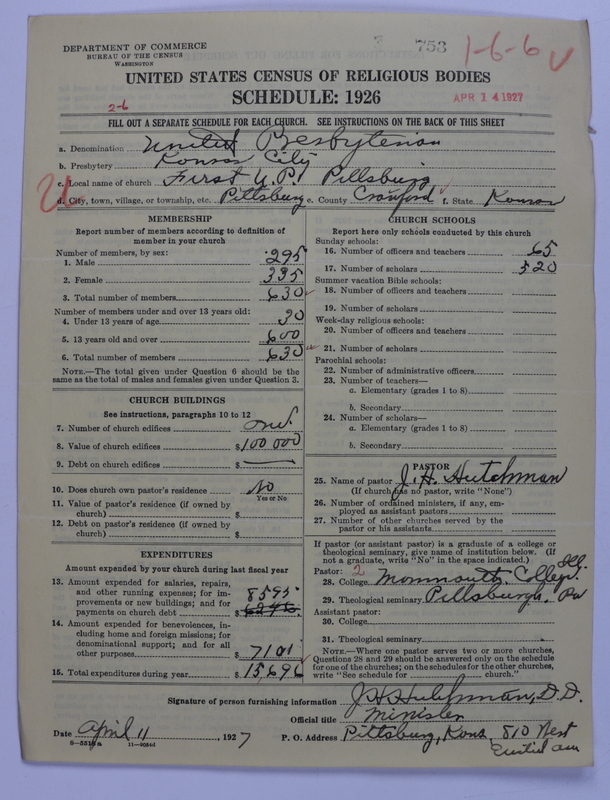 753
1-6-6
DEPARTMENT OF COMMERCE
BUREAU OF THE CENSUS
WASHINGTON
UNITED STATES CENSUS OF RELIGIOUS BODIES
SCHEDULE: 1926
APR 14 1927
2-6
FILL OUT A SEPARATE SCHEDULE FOR EACH CHURCH. SEE INSTRUCTIONS ON THE BACK OF THIS SHEET
a. Denomination United Presbyterian
b. Presbytery Kansas City
c. Local name of church First U.P. Pittsburg
d. City, town, village, or township, etc. Pittsburg e. County Crawford f. State Kansas
MEMBERSHIP
Report number of members according to definition of
member in your church
Number of members, by sex:
1. Male 295
2. Female 335
3. Total number of members 630
Number of members under and over 13 years old:
4. Under 13 years of age 30
5. 13 years old and over 600
6. Total number of members 630
NOTE.—The total given under Question 6 should be the
same as the total of males and females given under Question 3.
CHURCH BUILDINGS
See instructions, paragraphs 10 to 12
7. Number of church edifices one
8. Value of church edifices $100 000
9. Debt on church edifices $ —
10. Does church own pastor's residence No
Yes or No
11. Value of pastor's residence (if owned by
church) $
12. Debt on pastor's residence (if owned by
church) $
EXPENDITURES
Amount expended by your church during last fiscal year
13. Amount expended for salaries, repairs,
and other running expenses; for im-
provements or new buildings; and for
payments on church debt $ 8595
14. Amount expended for benevolences, in-
cluding home and foreign missions; for
denominational support; and for all
other purposes $ 7101
15. Total expenditures during year $15,696
CHURCH SCHOOLS
Report here only schools conducted by this church
Sunday schools:
16. Number of officers and teachers 65
17. Number of scholars 520
Summer vacation Bible schools:
18. Number of officers and teachers
19. Number of scholars
Week-day religious schools:
20. Number of officers and teachers
21. Number of scholars
Parochial schools:
22. Number of administrative officers
23. Number of teachers—
a. Elementary (grades 1 to 8)
b. Secondary
24. Number of scholars—
a. Elementary (grades 1 to 8)
b. Secondary
PASTOR
25. Name of pastor J. H. Hutchman
(If church has no pastor, write "None")
26. Number of ordained ministers, if any, em-
ployed as assistant pastors
27. Number of other churches served by the
pastor or his assistants
If pastor (or assistant pastor) is a graduate of a college or
theological seminary, give name of institution below. (If
not a graduate, write "No" in the space indicated.)
Pastor: 2
28. College Monmouth College Ill.
29. Theological seminary Pittsburgh. Pa
Assistant pastor:
30. College
31. Theological seminary
NOTE.—Where one pastor serves two or more churches,
Questions 28 and 29 should be answered only on the schedule
for one of the churches; on the schedules for the other churches,
write "See schedule for church."
Signature of person furnishing information J H Hutchman, D.D.
Official title Minister
Date April 11, 1927 P. O. Address Pittsburg, Kans. 810 West
Euclid ave
11—9054d